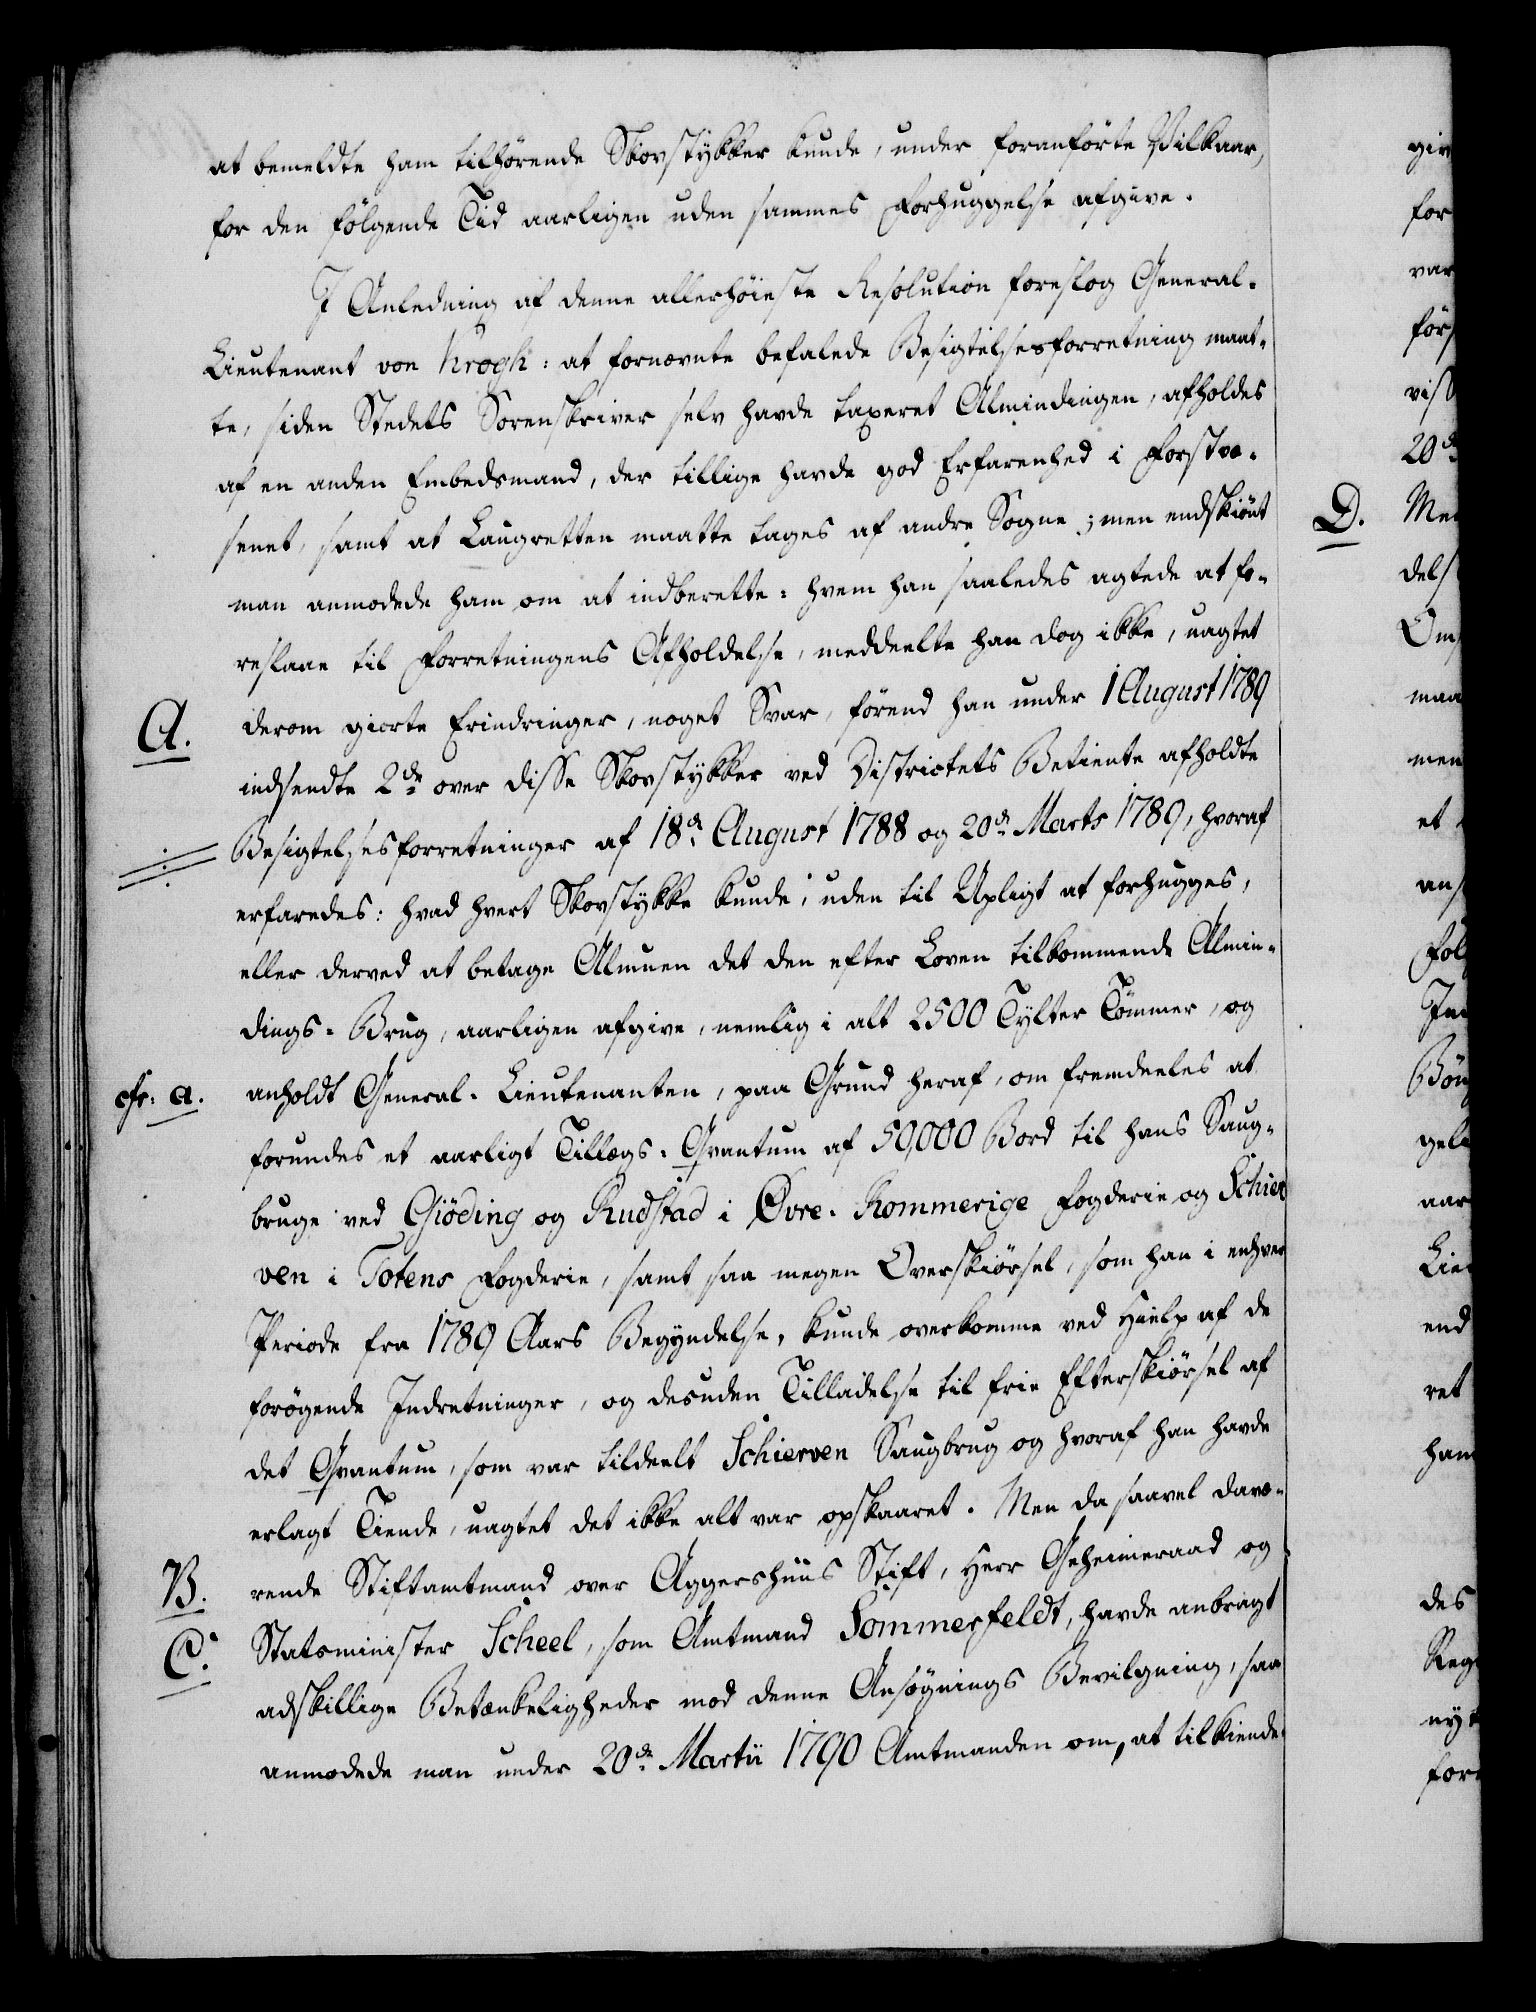 at bemeldte ham tilhørende Skovstykker kunde, under foranførte Vilkaar,
for den følgende Tid aarligen uden sammes Forhuggelse afgive.
I Anledning af denne allerhøieste Resolution foreslog General-
Lieutenant von Krogh: at fornævnte befalede Besigtelsesforretning maat-
te, siden Stedets Sorenskriver selv havde taxeret Almindingen, afholdes
af en anden Embedsmand, der tillige havde god Erfarenhed i Forstvæ-
senet, samt at Laugretten maatte tages af andre Sogne; men endskiønt
man anmodede ham om at indberette: hvem han saaledes agtede at fo-
reslaae til Forretningens Afholdelse, meddeelte han dog ikke, uagtet
A. derom giorte Erindringer, noget Svar, førend han under 1 August 1789
indsendte 2de over disse Skovstykker ved Districtets Betiente afholdte
Besigtelsesforretninger af 18de August 1788 og 20de Marts 1789, hvoraf
erfaredes: hvad hvert Skovstykke kunde, uden til Upligt at forhugges,
eller derved at betage Almuen det den efter Loven tilkommende Almin-
dings-Brug, aarligen afgive, nemlig i alt 2500 Tylter Tømmer, og
cfr: a. anholdt General-Lieutenanten, paa Grund heraf, om fremdeeles at
forundes et aarligt Tillægs-Qvantum af 50,000 Bord til hans Saug-
bruge ved Giöding og Rudstad i Øvre-Rommerige Fogderie og Schier
ven i Totens Fogderie, samt saa megen Overskiørsel, som han i enhver
Periode fra 1789 Aars Begyndelse, kunde overkomme ved Hielp af de
forøgende Indretninger, og desuden Tilladelse til frie Efterskiørsel af
det Qvantum, som var tildeelt Schierven Saugbrug og hvoraf han havde
erlagt Tiende, uagtet det ikke alt var opskaaret. Men da saavel davæ-
B. rende Stiftamtmand over Aggershuus Stift, Herr Geheimeraad og
C. Statsminister Scheel, som Amtmand Sommerfeldt, havde anbragt
adskillige Betænkeligheder mod denne Ansøgnings Bevilgning, saa
anmodede man under 20de Martii 1790 Amtmanden om, at tilkiende-
giv
for
var
førs
viss
20de
D. Me
dels
Om
maa
men
et
ans
Føl
In
Bön
gel
aar
Lieu
end
ret
ham
des
Reg
ny
for